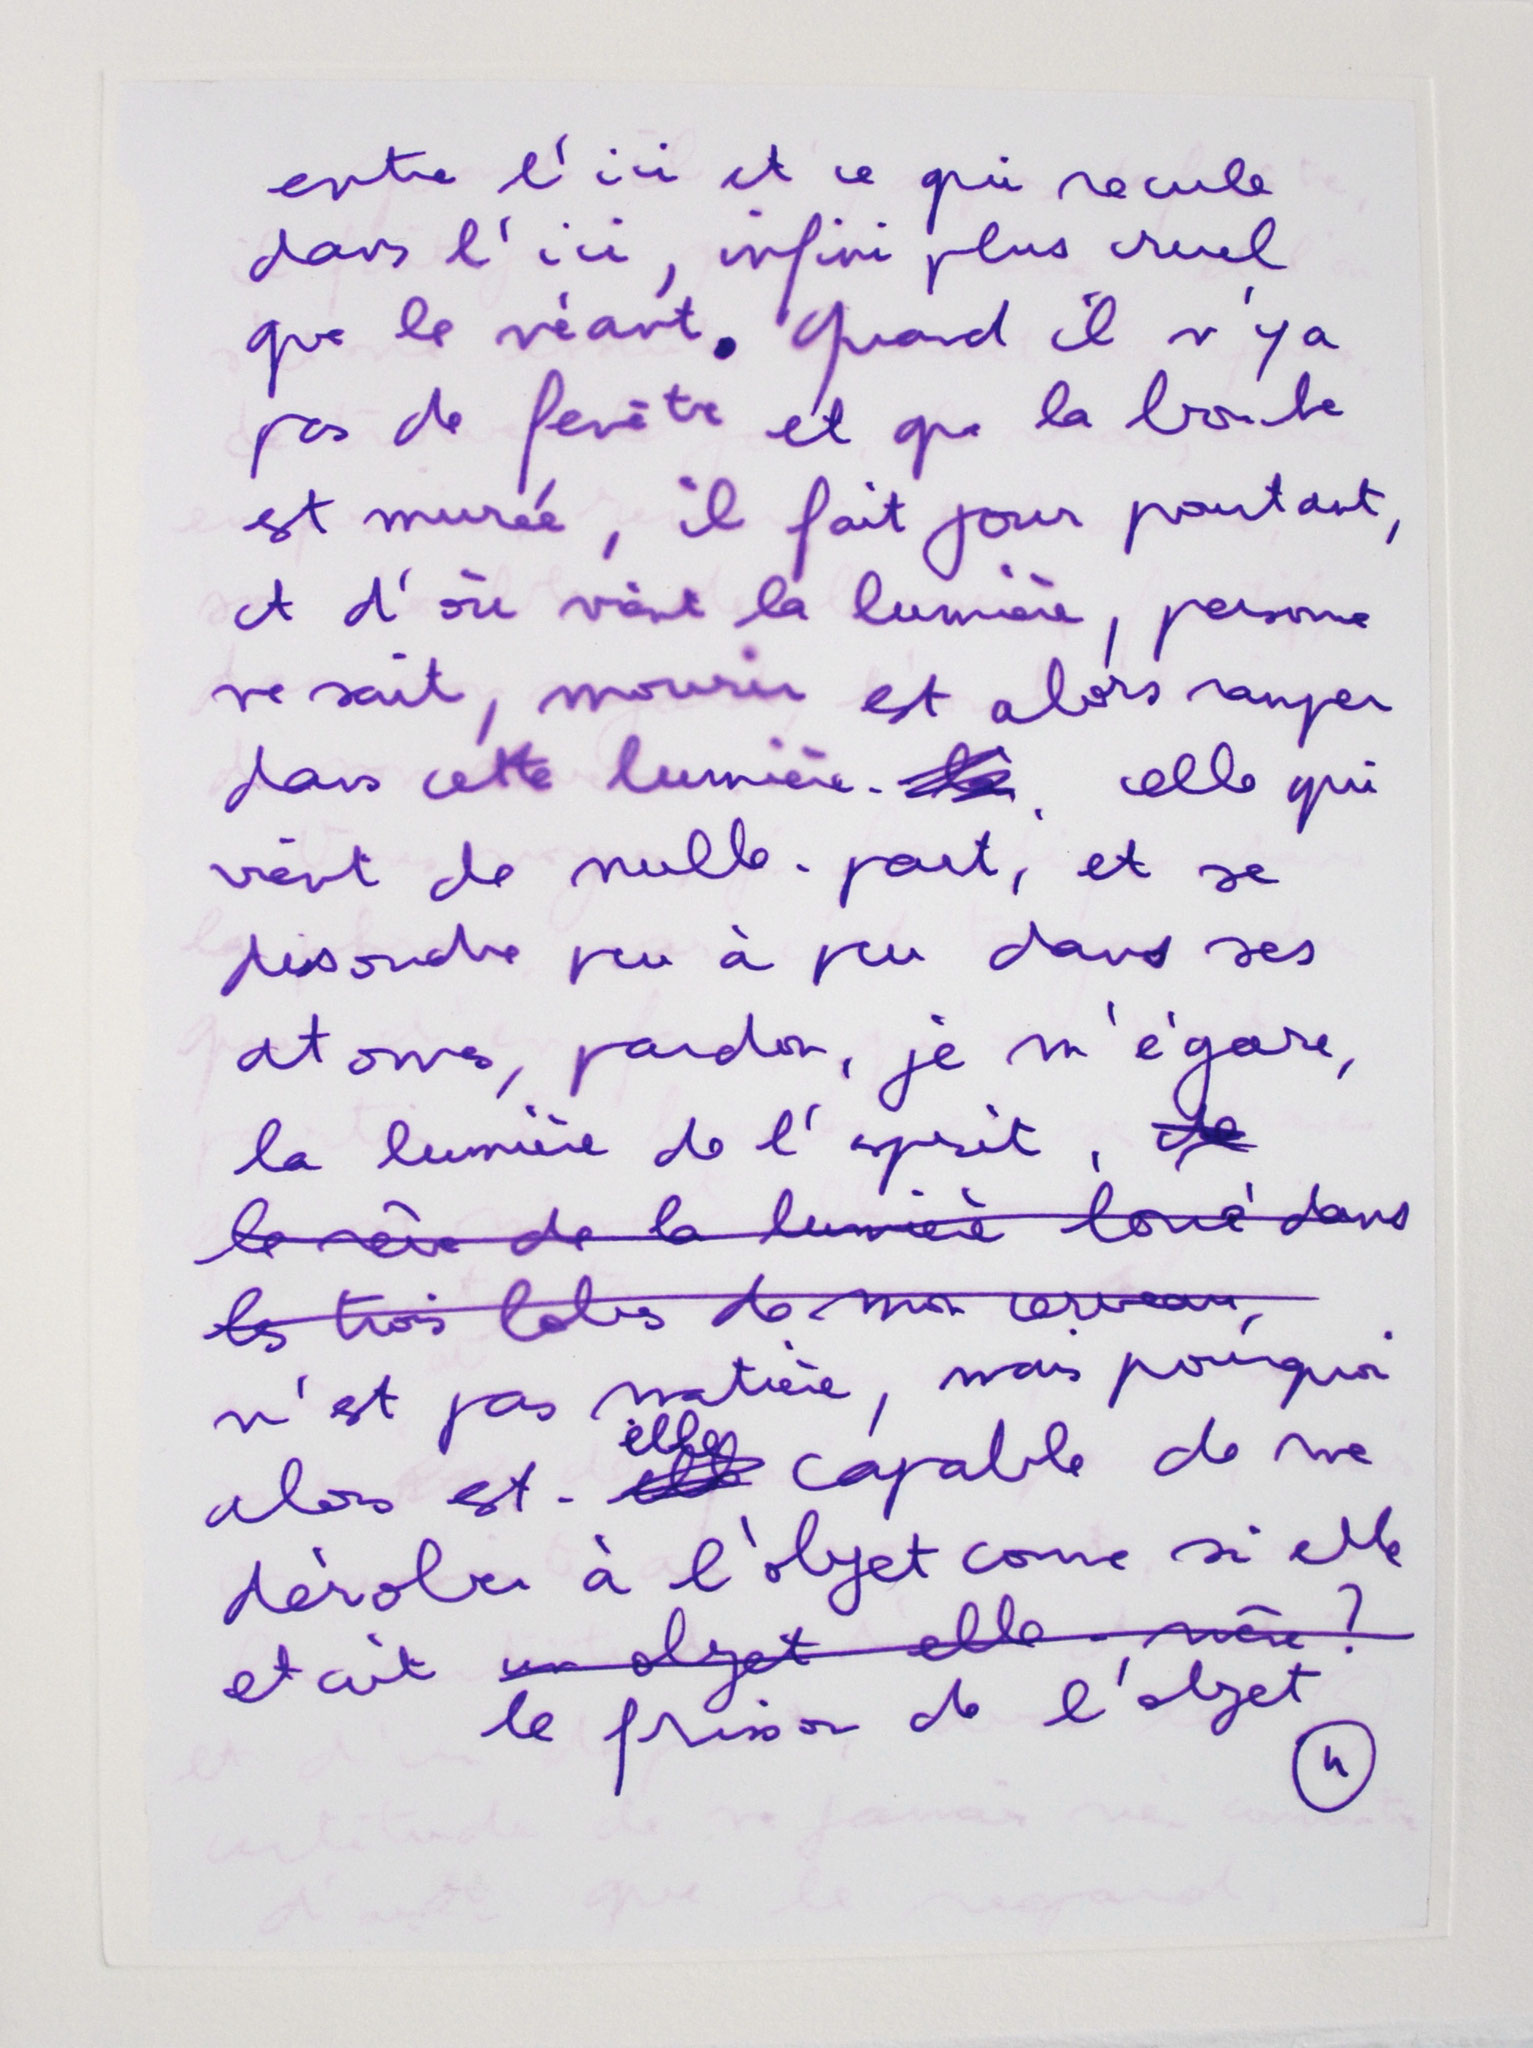 entre l'ici et ce qui recule
dans l'ici, infini plus cruel
que le néant. Quand il n'y a
pas de fenêtre et que la bouche
est murée, il fait jour pourtant,
et d'où vient la lumière, personne
ne sait, mourir est alors ramper
dans cette lumière - celle qui
vient de nulle-part, et se
dissoudre peu à peu dans ses
atomes, pardon, je m'égare,
la lumière de l'esprit, de
le rêve de la lumière dans
les trois lobes de mon cerveau,
n'est pas matière, mais pourquoi
alors est-
elle
elle capable de me
dérober à l'objet comme si elle
était un objet elle-même ?
le frisson de l'objet
4
et d'un
certitude de ne jamais
que le regard